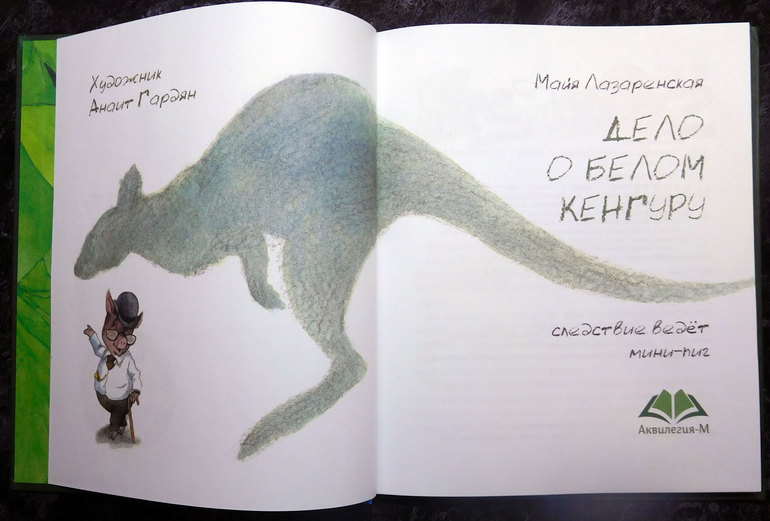 Художник
Анаит Гардян
Майя Лазаренская
ДЕЛО
О БЕЛОМ
КЕНГУРУ
следствие ведёт
мини-пиг
Аквилегия-М